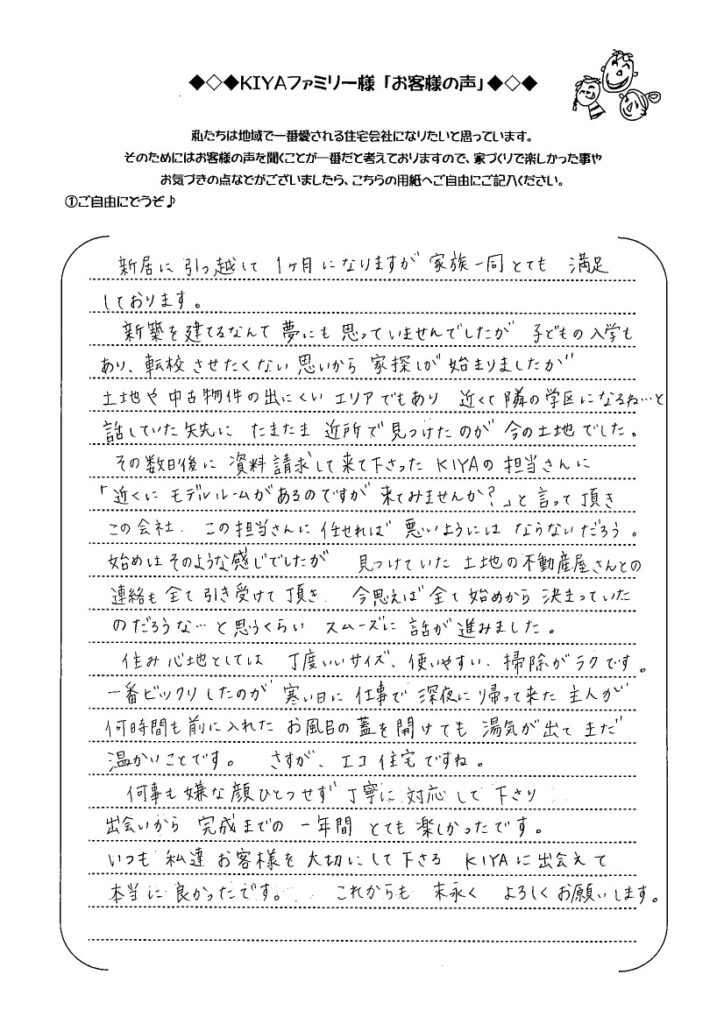 ◆◇◆KIYAファミリー様「お客様の声」◆◇◆
私たちは地域で一番愛される住宅会社になりたいと思っています。
そのためにはお客様の声を聞くことが一番だと考えておりますので、家づくりで楽しかった事や
お気づきの点などがございましたら、こちらの用紙へご自由にご記入ください。
①ご自由にどうぞ♪
新居に引っ越して 1ヶ月になりますが 家族一同とても 満足
しております。
新築を建てるなんて 夢にも 思っていませんでしたが 子どもの入学も
あり、転校させたくない思いから 家探しが 始まりましたが
土地や中古物件の出にくい エリアでもあり 近くて隣の学区になるね…と
話していた矢先に たまたま 近所で見つけたのが 今の土地でした。
その数日後に 資料請求して来て下さった KIYAの担当さんに
「近くに モデルルームがあるのですが 来てみませんか?」と言って頂き
この会社、この担当さんに任せれば 悪いようには ならないだろう。
始めはそのような感じでしたが 見つけていた 土地の不動産屋さんとの
連絡も全て引き受けて頂き、今思えば全て始めから 決まっていた
のだろうな…と思うくらい スムーズに話が進みました。
住み心地としては 丁度いいサイズ、使いやすい、掃除がラクです。
一番ビックリしたのが 寒い日に 仕事で 深夜に帰って来た 主人が
何時間も前に入れた お風呂の蓋を開けても 湯気が出て まだ
温かいことです。 さすが、エコ住宅ですね。
何事も嫌な顔ひとつせず 丁寧に対応して下さり
出会いから 完成までの 一年間 とても 楽しかったです。
いつも 私達 お客様を 大切にして下さる KIYAに出会えて
本当に良かったです。 これからも 末永く よろしくお願いします。